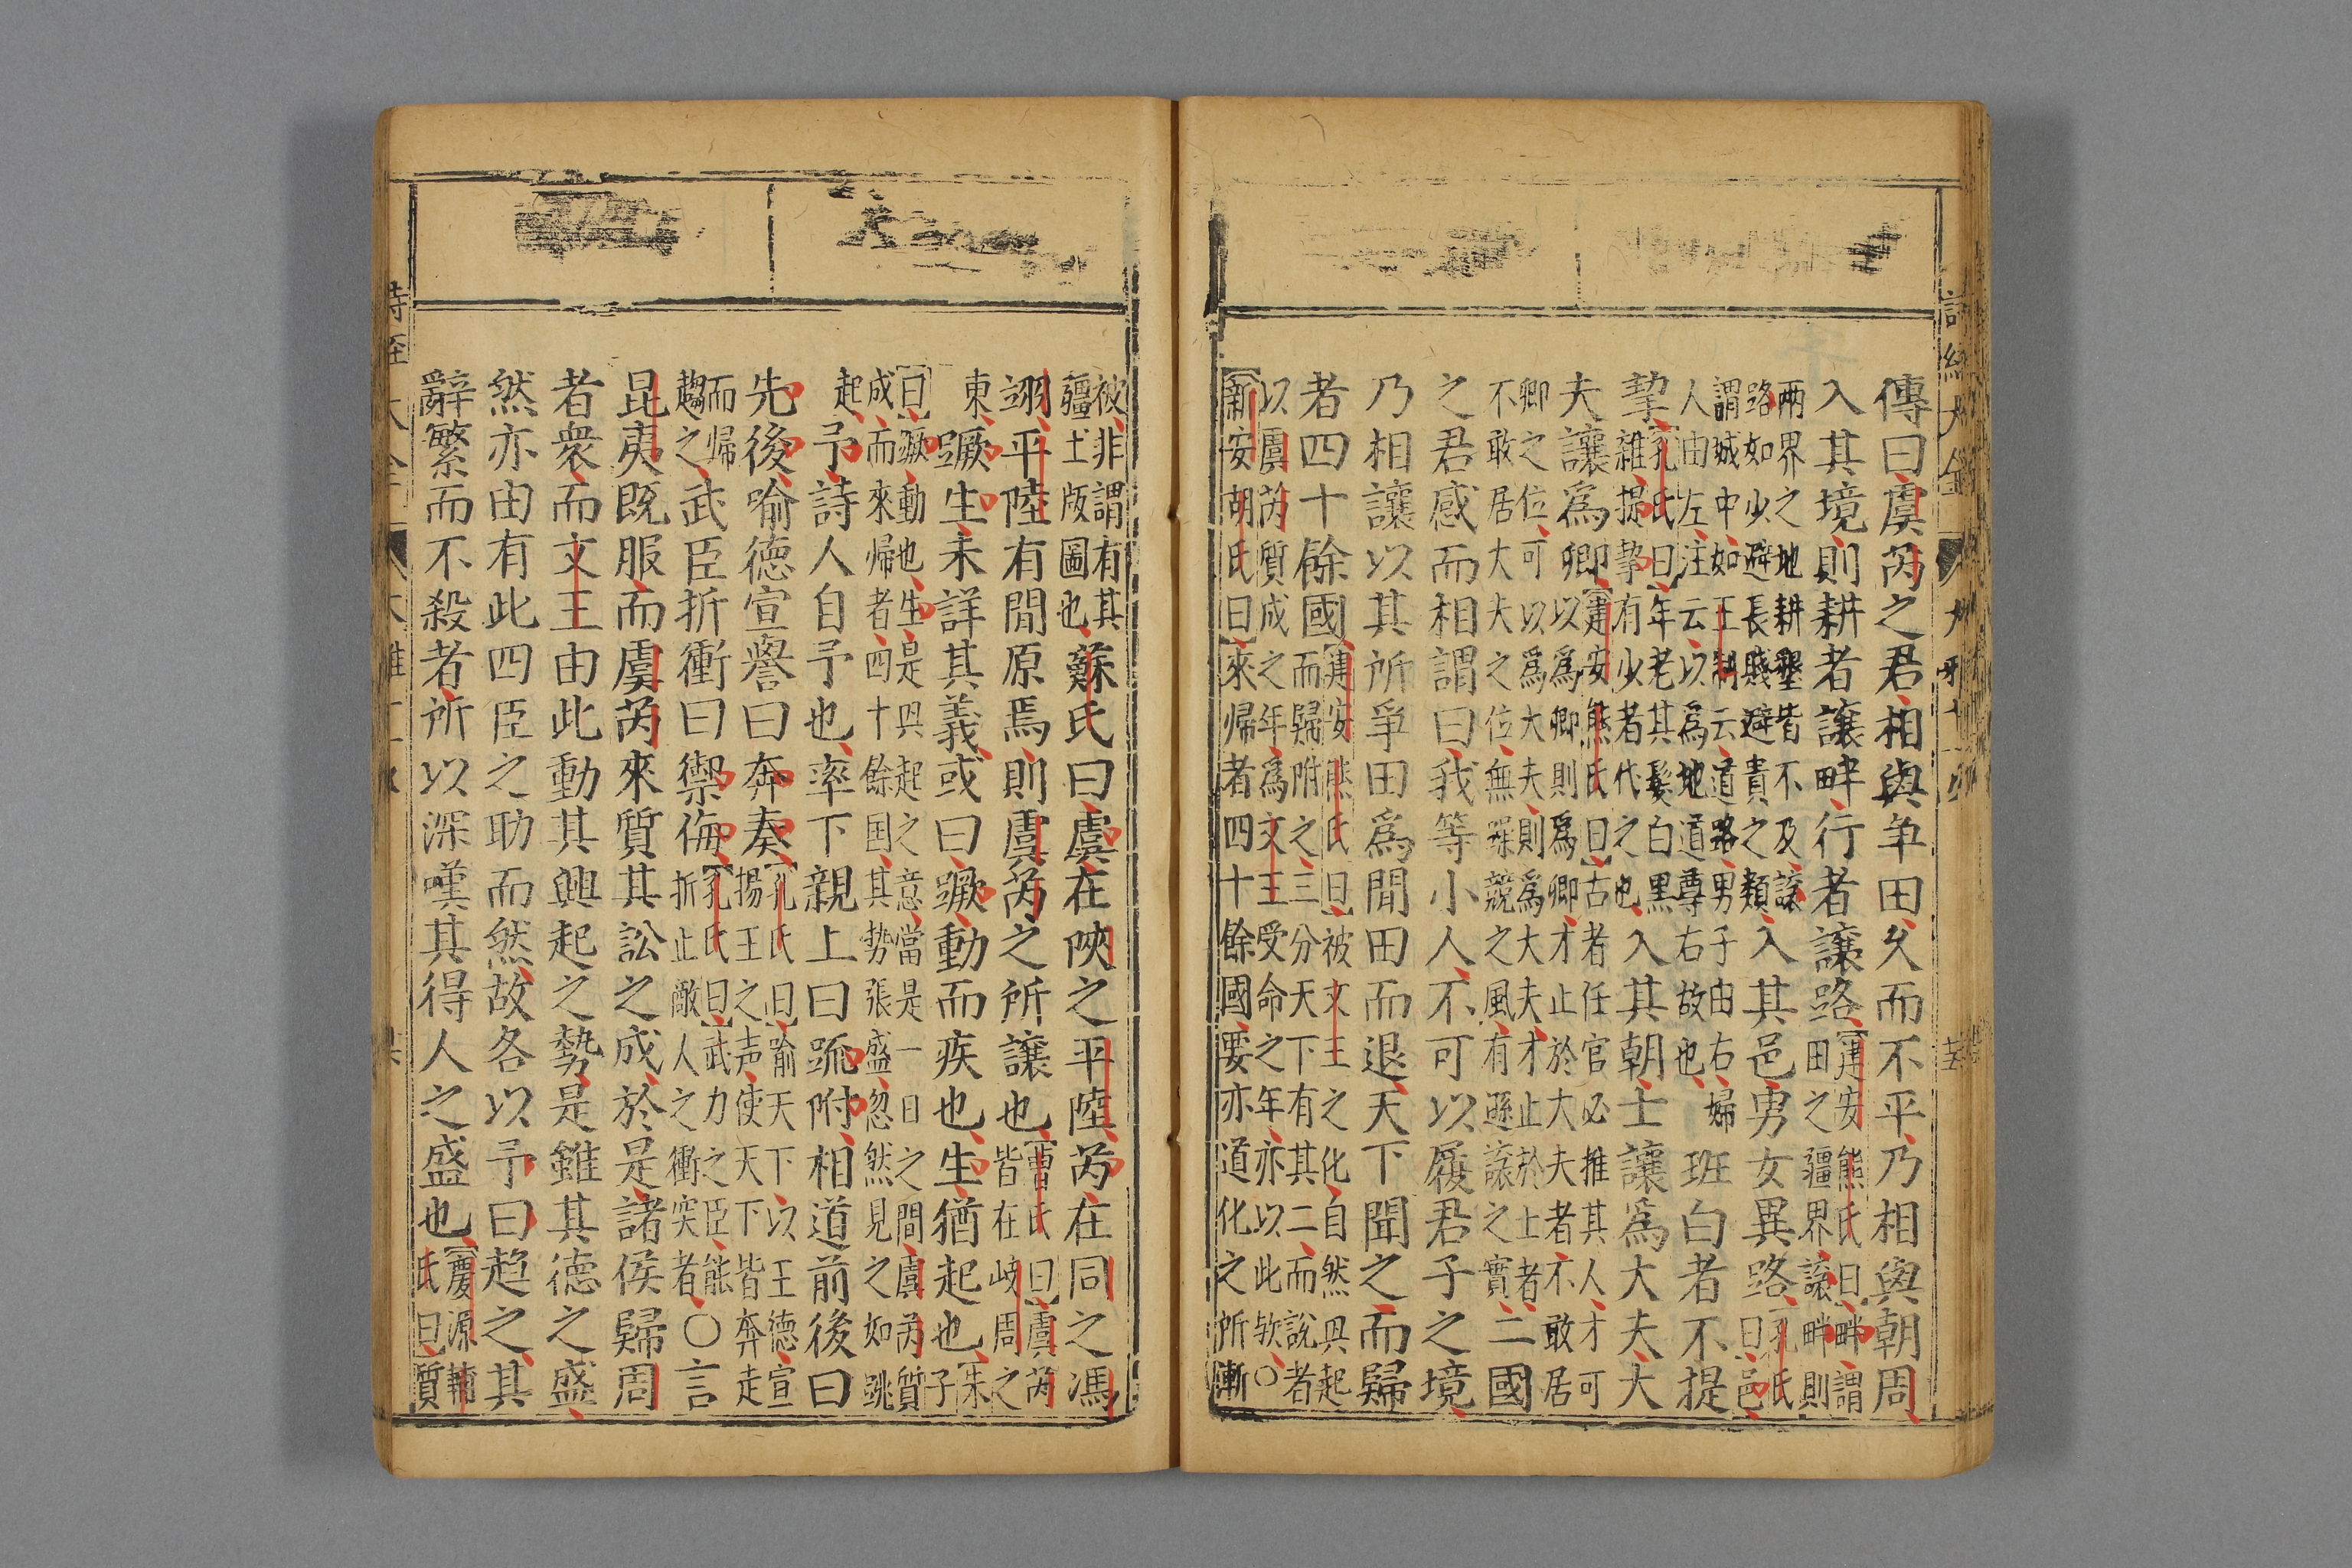 傳曰虞芮之君相與爭田久而不平乃相與朝周
入其境則耕者讓畔行者讓路【建安熊氏曰】畔謂
田之疆界讓畔則
兩界之地耕墾皆不及讓
路如少避長賤避貴之類入其邑男女異路【孔氏
曰】邑
謂城中如王制云道路男子由右婦
人由左注云以為地道尊右故也班白者不提
挈【孔氏曰】年老其髮白黑
雜提挈有少者代之也入其朝士讓爲大夫大
夫讓爲卿【建安熊氏曰】古者任官必推其人才可
以為卿則為卿才止於大夫者不敢居
卿之位可以為大夫則為大夫才止於上者
不敢居大夫之位無躁競之風有遜讓之實二國
之君感而相謂曰我等小人不可以履君子之境
乃相讓以其所爭田爲閒田而退天下聞之而歸
者四十餘國【建安熊氏曰】被文王之化自然興起
而歸附之三分天下有其二而說者
以虞芮質成之年為文王受命之年亦以此欤○
【新安胡氏曰】來帰者四十餘國要亦道化之所漸
被非謂有其
疆土版圖也蘇氏曰虞在陝之平陸芮在同之馮
翊平陸有閒原焉則虞芮之所讓也【曹氏曰】虞芮
皆在岐周之
東蹶生未詳其義或曰蹶動而疾也生猶起也【朱
子
曰】蹶動也生是興起之意當是一日之間虞芮質
成而來帰者四十餘国其勢張盛忽然見之如跳
起予詩人自予也率下親上曰疏附相道前後曰
先後喻德宣譽曰奔奏【孔氏曰】喻天下以王德宣
揚王之声使天下皆奔走
而帰
趨之武臣折衝曰禦侮【孔氏曰】武力之臣能
折止敵人之衝突者○言
昆夷既服而虞芮來質其訟之成於是諸侯歸周
者衆而文王由此動其興起之勢是雖其德之盛
然亦由有此四臣之助而然故各以予曰起之其
辭繁而不殺者所以深嘆其得人之盛也【慶源輔
氏曰】質